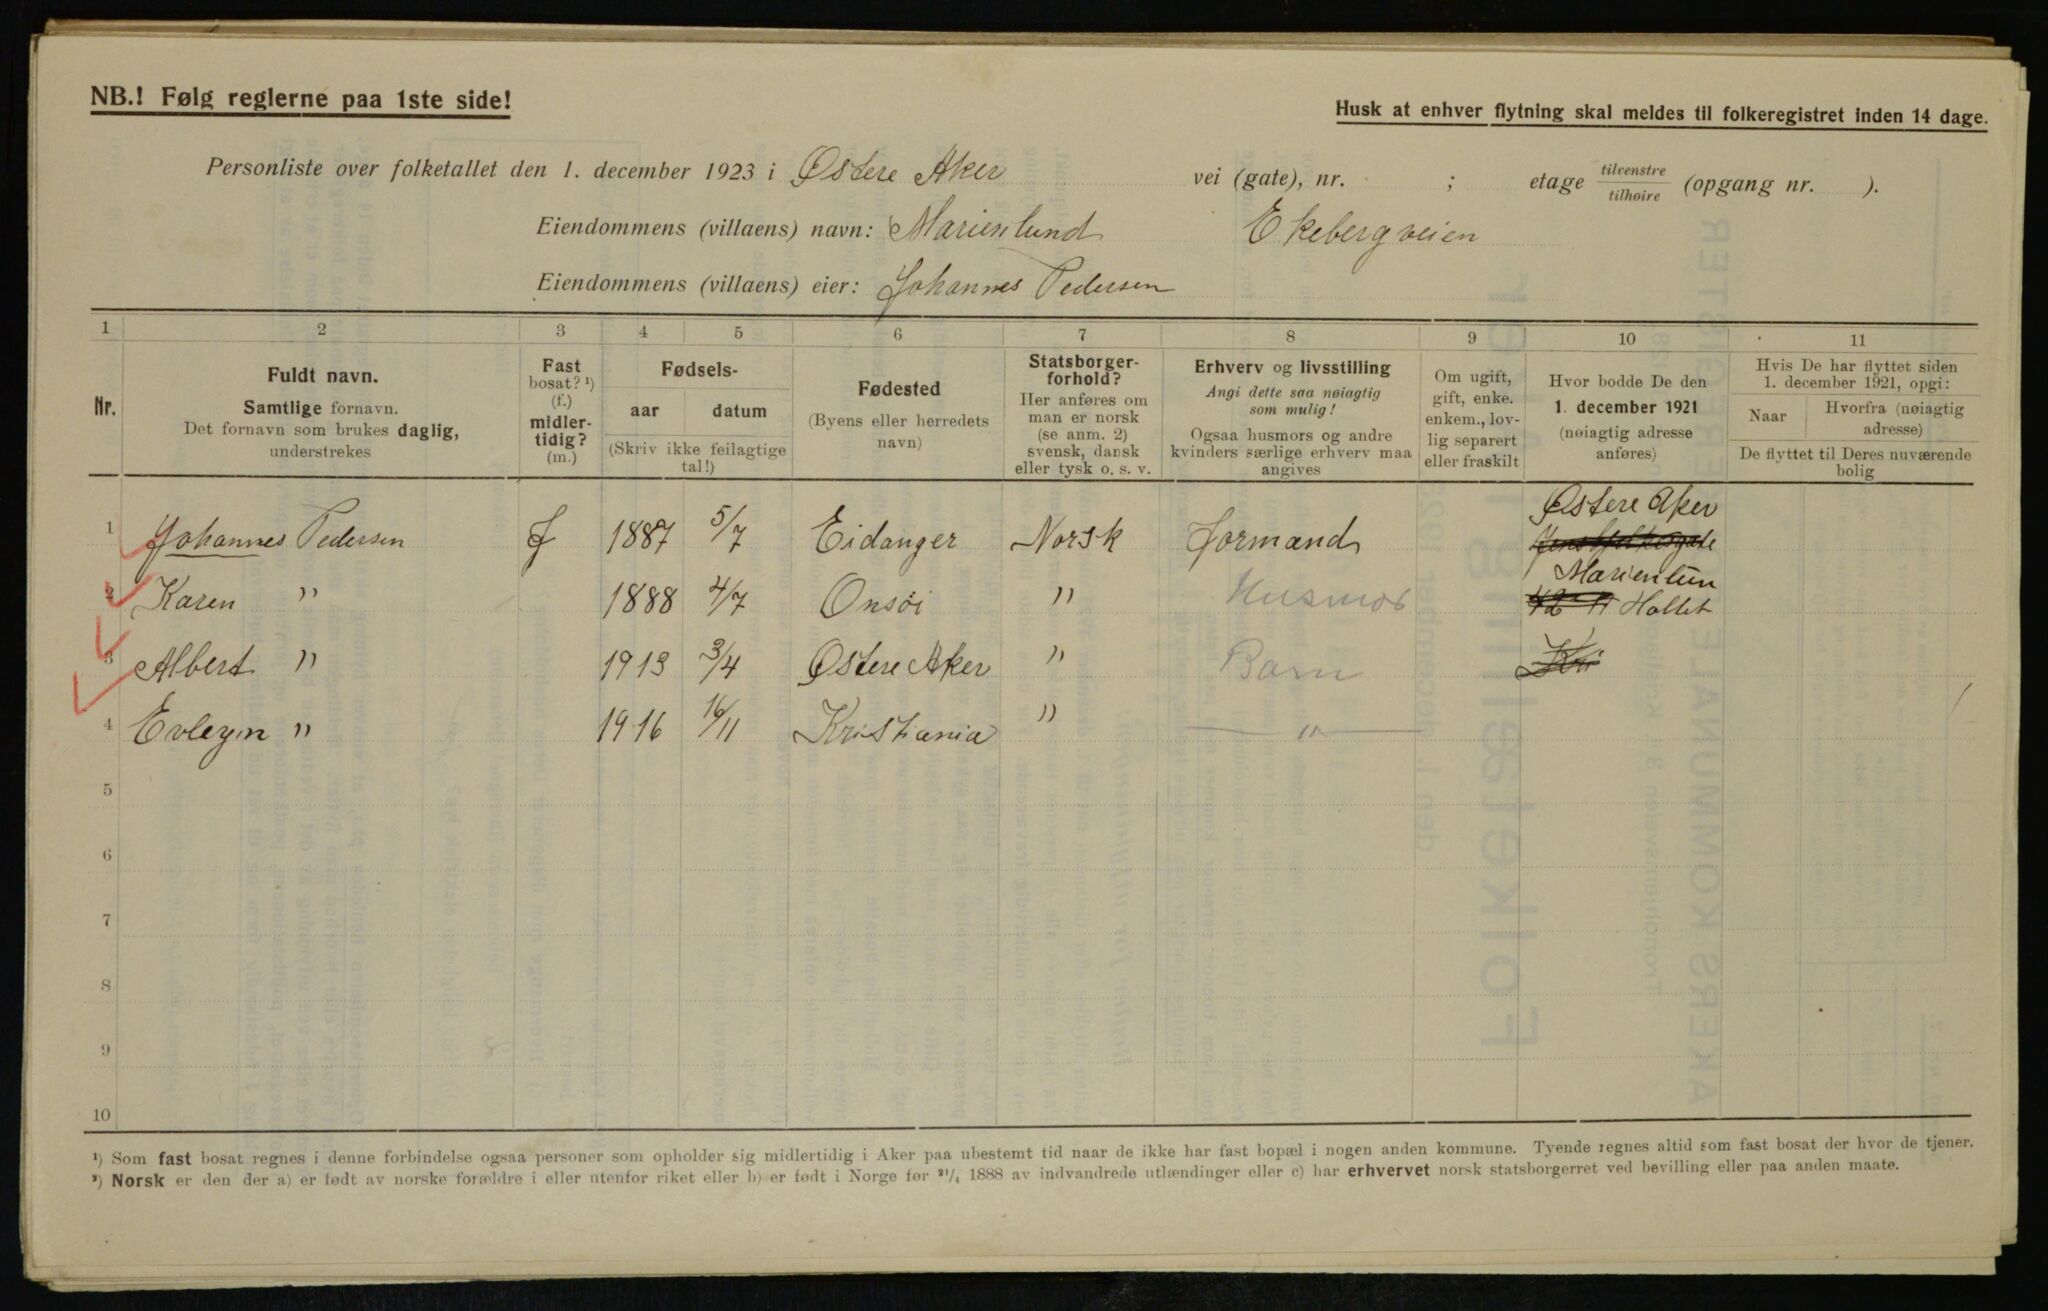 NB.! Følg reglerne paa 1ste side!
Husk at enhver flytning skal meldes til folkeregistret inden 14 dage.
Personliste over folketallet den 1. december 1923 i Østere Aker vei (gate), nr. ; etage tilvenstre tilhøire (opgang nr. ).
Eiendommens (villaens) navn: Marienlund Ekebergveien
Eiendommens (villaens) eier: Johannes Pedersen
1 2 3 4 5 6 7 8 9 10 11
Nr.
Fuldt navn.
Samtlige fornavn.
Det fornavn som brukes daglig,
understrekes
Fast
bosat? ¹)
(f.)
midler-
tidig?
(m.)
Fødsels-
aar datum
(Skriv ikke feilagtige
tal!)
Fødested
(Byens eller herredets
navn)
Statsborger-
forhold?
Her anføres om
man er norsk
(se anm. 2)
svensk, dansk
eller tysk o. s. v.
Erhverv og livsstilling
Angi dette saa nøiagtig
som mulig!
Ogsaa husmors og andre
kvinders særlige erhverv maa
angives
Om ugift,
gift, enke.
enkem., lov-
lig separert
eller fraskilt
Hvor bodde De den
1. december 1921
(nøiagtig adresse
anføres)
Hvis De har flyttet siden
1. december 1921, opgi:
Naar
Hvorfra (nøiagtig
adresse)
De flyttet til Deres nuværende
bolig
1 Johannes Pedersen f 1887 5/7 Eidanger Norsk Formand Østere Aker
Marienlun
2 Karen " 1888 4/7 Onsöi " Husmor Hallet
3 Albert " 1913 3/4 Østere Aker " Barn Kri
4 Evleyn " 1916 16/11 Kristiania " "
5
6
7
8
9
10
¹) Som fast bosat regnes i denne forbindelse ogsaa personer som opholder sig midlertidig i Aker paa ubestemt tid naar de ikke har fast bopæl i nogen anden kommune. Tyende regnes altid som fast bosat der hvor de tjener.
²) Norsk er den der a) er født av norske forældre i eller utenfor riket eller b) er født i Norge før ²¹/₄ 1888 av indvandrede utlændinger eller c) har erhvervet norsk statsborgerret ved bevilling eller paa anden maate.